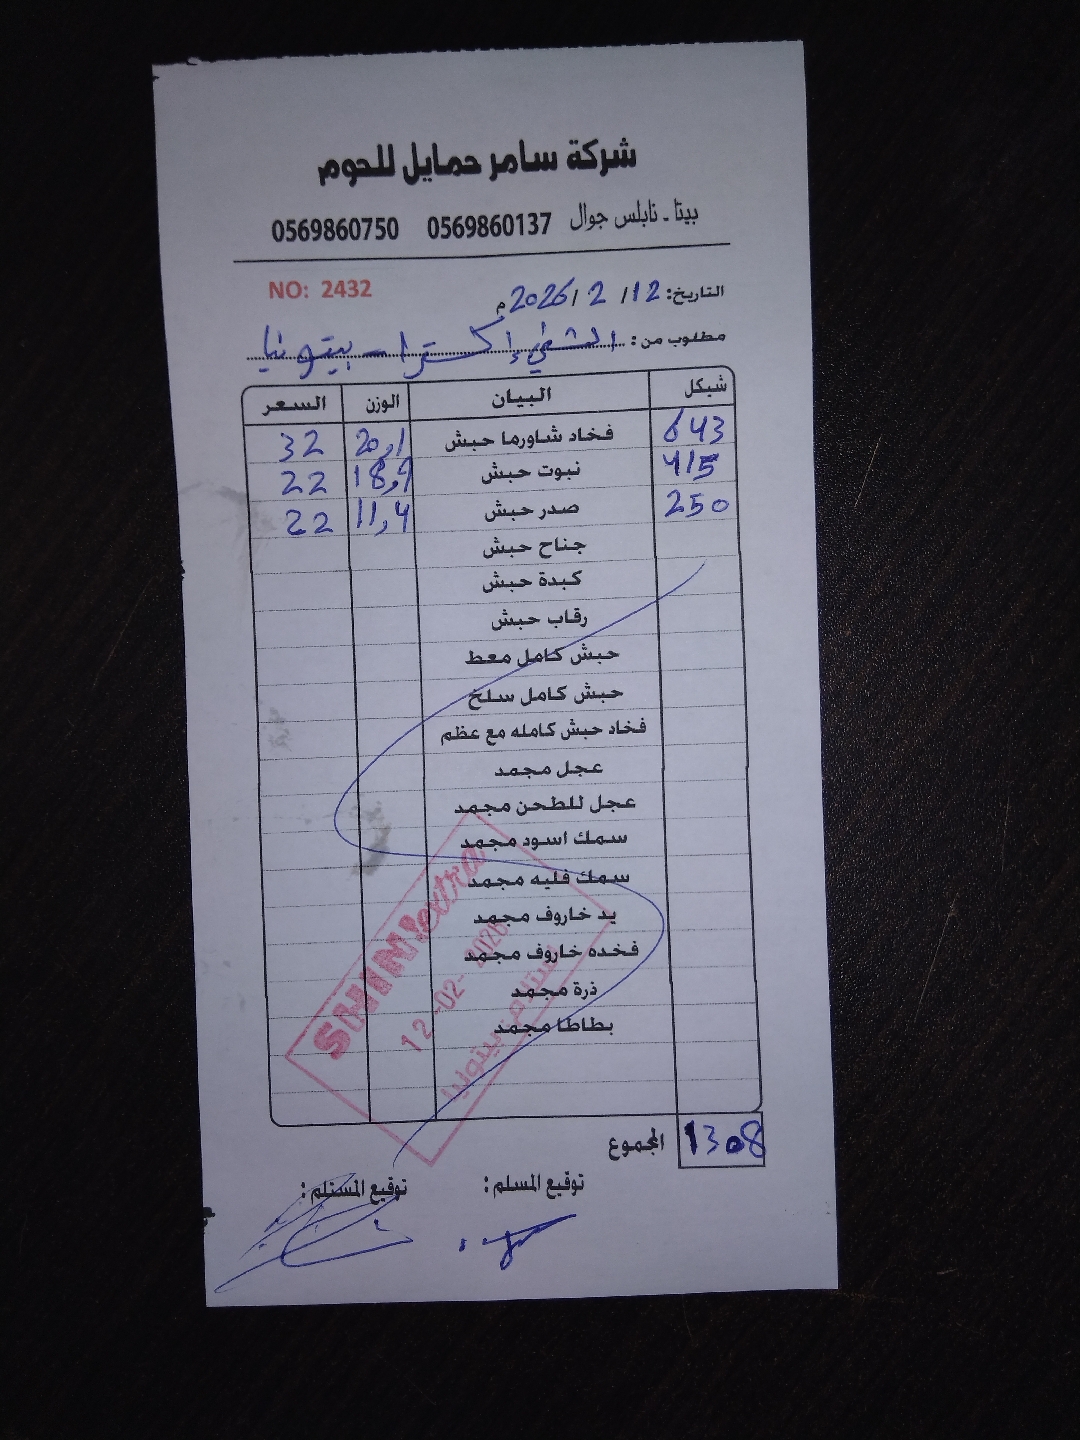 شركة سامر حمايل للحوم
بيتا - نابلس جوال 0569860137 0569860750
NO: 2432
التاريخ: 12 / 2 / 2026 م
مطلوب من: الشني إكسترا - بيتونيا
شيكل البيان الوزن السعر
643 فخاد شاورما حبش 20,1 32
415 نبوت حبش 18,9 22
250 صدر حبش 11,4 22
جناح حبش
كبدة حبش
رقاب حبش
حبش كامل معط
حبش كامل سلخ
فخاد حبش كامله مع عظم
عجل مجمد
عجل للطحن مجمد
سمك اسود مجمد
سمك فليه مجمد
يد خاروف مجمد
فخده خاروف مجمد
ذرة مجمد
بطاطا مجمد
SHINI extra
12-02-2026
استلام بيتونيا
المجموع 1308
توقيع المسلم : توقيع المستلم :